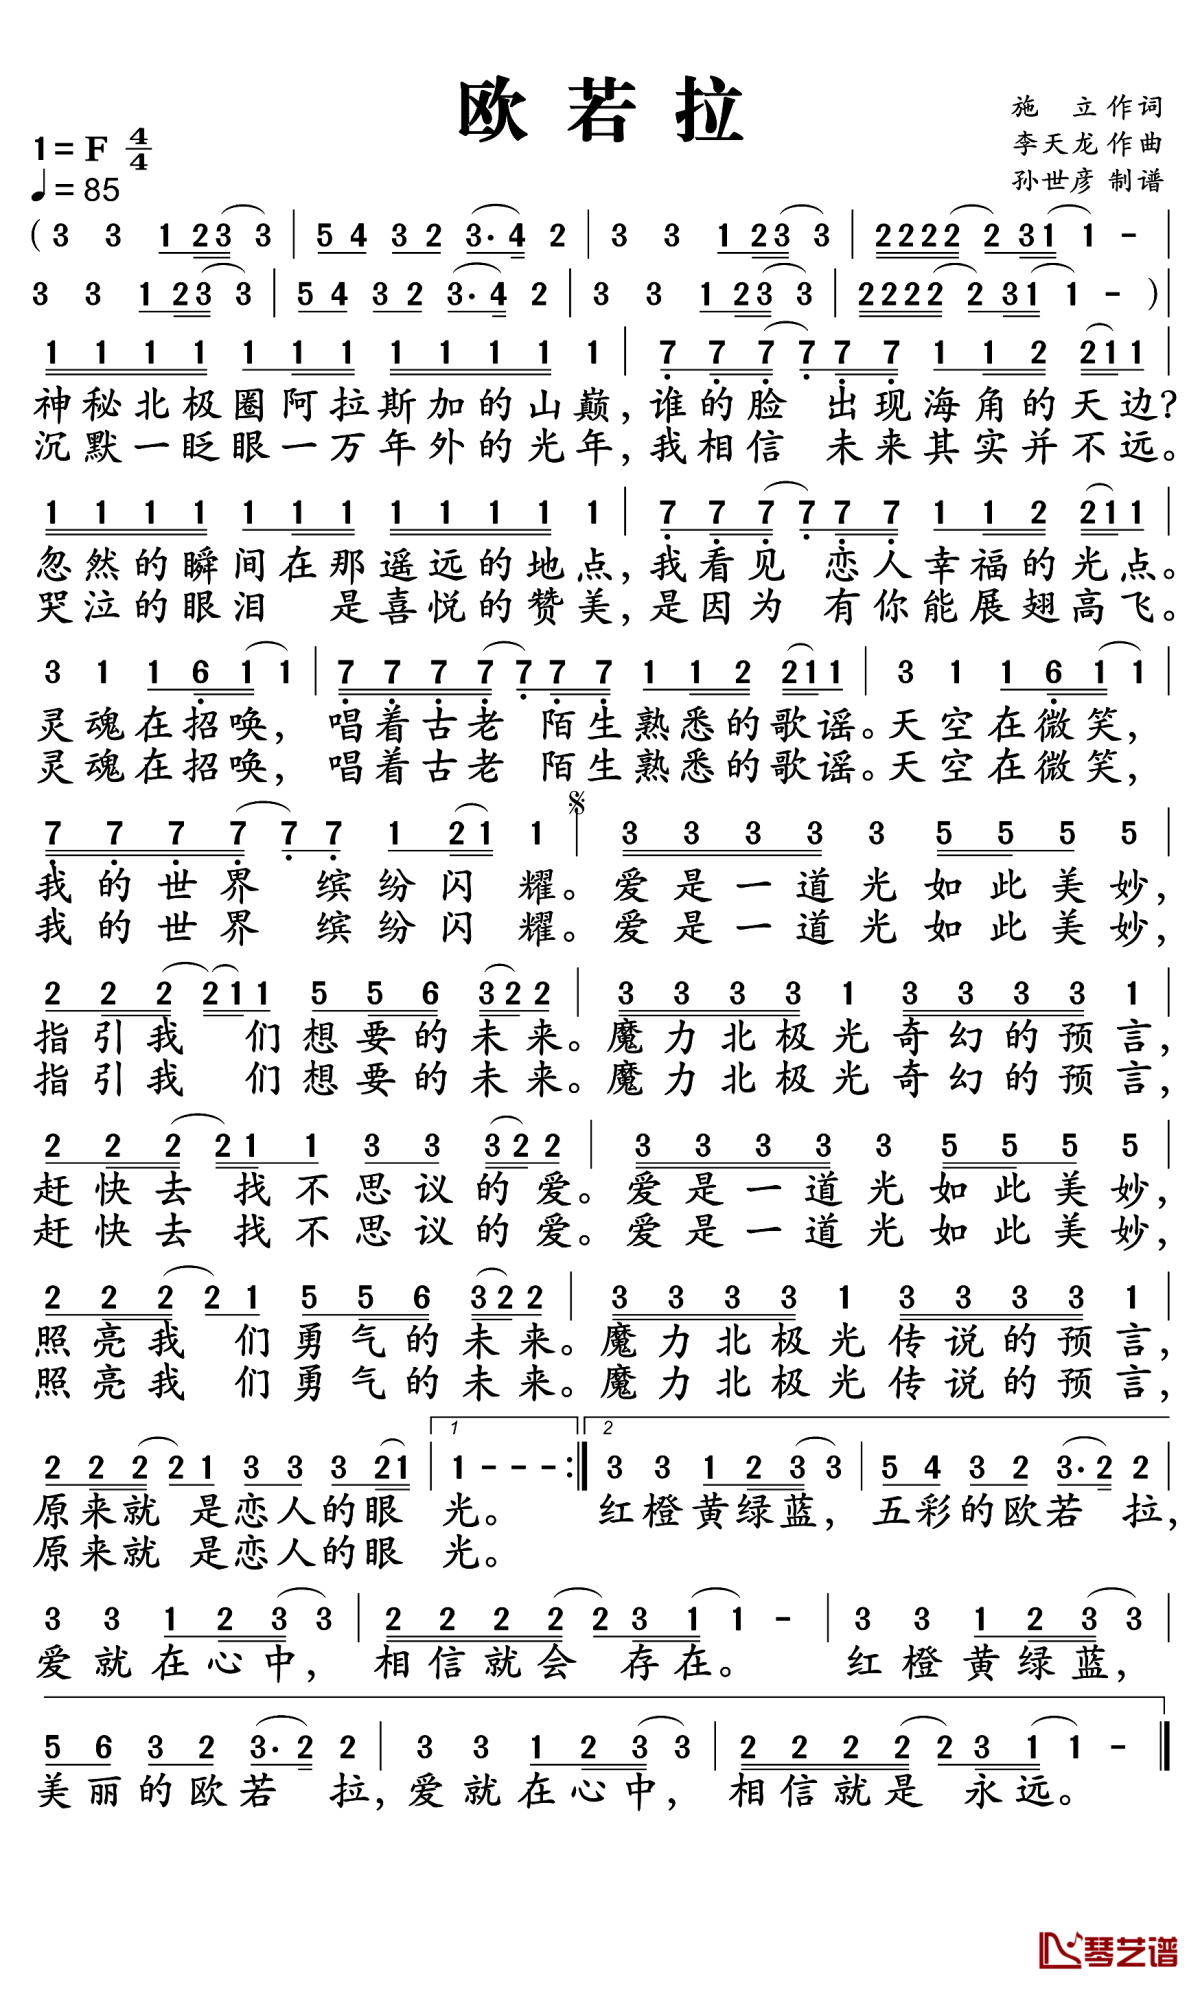 欧若拉
施 立 作词
李天龙 作曲
孙世彦 制谱
1= F 4/4
♩= 85
( 3 3 1 2 3 3 | 5 4 3 2 3· 4 2 | 3 3 1 2 3 3 | 2 2 2 2 2 3 1 1 - |
3 3 1 2 3 3 | 5 4 3 2 3· 4 2 | 3 3 1 2 3 3 | 2 2 2 2 2 3 1 1 - ) |
1 1 1 1 1 1 1 1 1 1 1 1 | 7 7 7 7 7 7 1 1 2 2 1 1 |
神秘北极圈阿拉斯加的山巅，谁的脸 出现海角的天边?
沉默一眨眼一万年外的光年，我相信 未来其实并不远。
1 1 1 1 1 1 1 1 1 1 1 1 | 7 7 7 7 7 7 1 1 2 2 1 1 |
忽然的瞬间在那遥远的地点，我看见 恋人幸福的光点。
哭泣的眼泪 是喜悦的赞美，是因为 有你能展翅高飞。
3 1 1 6 1 1 | 7 7 7 7 7 7 7 1 1 2 2 1 1 | 3 1 1 6 1 1 |
灵魂在招唤， 唱着古老 陌生熟悉的歌谣。天空在微笑，
灵魂在招唤， 唱着古老 陌生熟悉的歌谣。天空在微笑，
7 7 7 7 7 7 1 2 1 1 | 3 3 3 3 3 5 5 5 5 |
我的世界 缤纷闪 耀。爱是一道光如此美妙，
我的世界 缤纷闪 耀。爱是一道光如此美妙，
2 2 2 2 1 1 5 5 6 3 2 2 | 3 3 3 3 1 3 3 3 3 1 |
指引我 们想要的未来。魔力北极光奇幻的预言，
指引我 们想要的未来。魔力北极光奇幻的预言，
2 2 2 2 1 1 3 3 3 2 2 | 3 3 3 3 3 5 5 5 5 |
赶快去 找不思议的爱。爱是一道光如此美妙，
赶快去 找不思议的爱。爱是一道光如此美妙，
2 2 2 2 1 5 5 6 3 2 2 | 3 3 3 3 1 3 3 3 3 1 |
照亮我 们勇气的未来。魔力北极光传说的预言，
照亮我 们勇气的未来。魔力北极光传说的预言，
1 2
2 2 2 2 1 3 3 3 2 1 | 1 - - - :| 3 3 1 2 3 3 | 5 4 3 2 3· 2 2 |
原来就 是恋人的眼 光。 红橙黄绿蓝，五彩的欧若 拉，
原来就 是恋人的眼 光。
3 3 1 2 3 3 | 2 2 2 2 2 3 1 1 - | 3 3 1 2 3 3 |
爱就在心中， 相信就会 存在。 红橙黄绿蓝，
5 6 3 2 3· 2 2 | 3 3 1 2 3 3 | 2 2 2 2 2 3 1 1 - ‖
美丽的欧若 拉，爱就在心中， 相信就是 永远。
琴艺谱